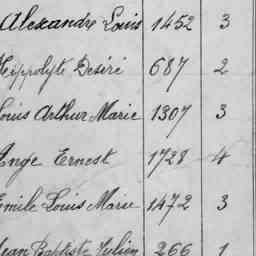 Alexandre Louis 1452 3
Hippolyte Désiré 687 2
Louis Arthur Marie 1307 3
Ange Ernest 1728 4
Emile Louis Marie 1472 3
Jean Baptiste Julien 266 1